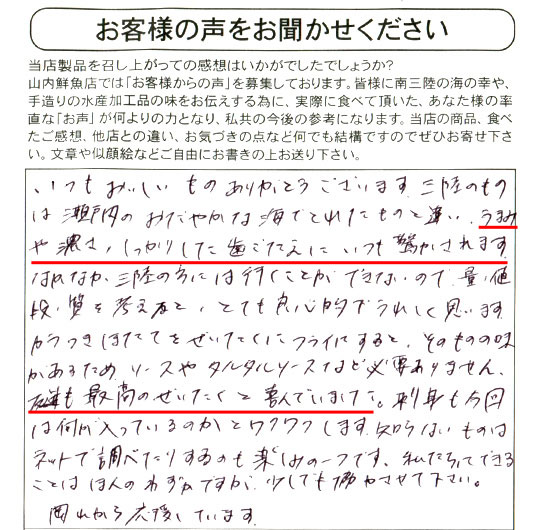 お客様の声をお聞かせください
当店製品を召し上がっての感想はいかがでしたでしょうか?
山内鮮魚店では「お客様からの声」を募集しております。皆様に南三陸の海の幸や、
手造りの水産加工品の味をお伝えする為に、実際に食べて頂いた、あなた様の率
直な「お声」が何よりの力となり、私共の今後の参考になります。当店の商品、食べ
たご感想、他店との違い、お気づきの点など何でも結構ですのでぜひお寄せ下さ
い。文章や似顔絵などご自由にお書きの上お送り下さい。
いつもおいしいものありがとうございます。三陸のもの
は瀬戸内のおだやかな海でとれたものと違い、うまみ
や濃さ、しっかりした歯ごたえにいつも驚かされます。
なかなか三陸の方には行くことができないので、量、値
段、質を考えると、とても良心的でうれしく思います。
からつきほたてをぜいたくにフライにすると、そのものの味
があるため、ソースやタルタルソースなど必要ありません。
も最高のぜいたくと喜んでいました。刺身も今回
は何が入っているのかとワクワクします。知らないものは
ネットで調べたりするのも楽しみの一つです。私たちにできる
ことはほんのわずかですが、少しでも協力させて下さい。
岡山から応援しています。